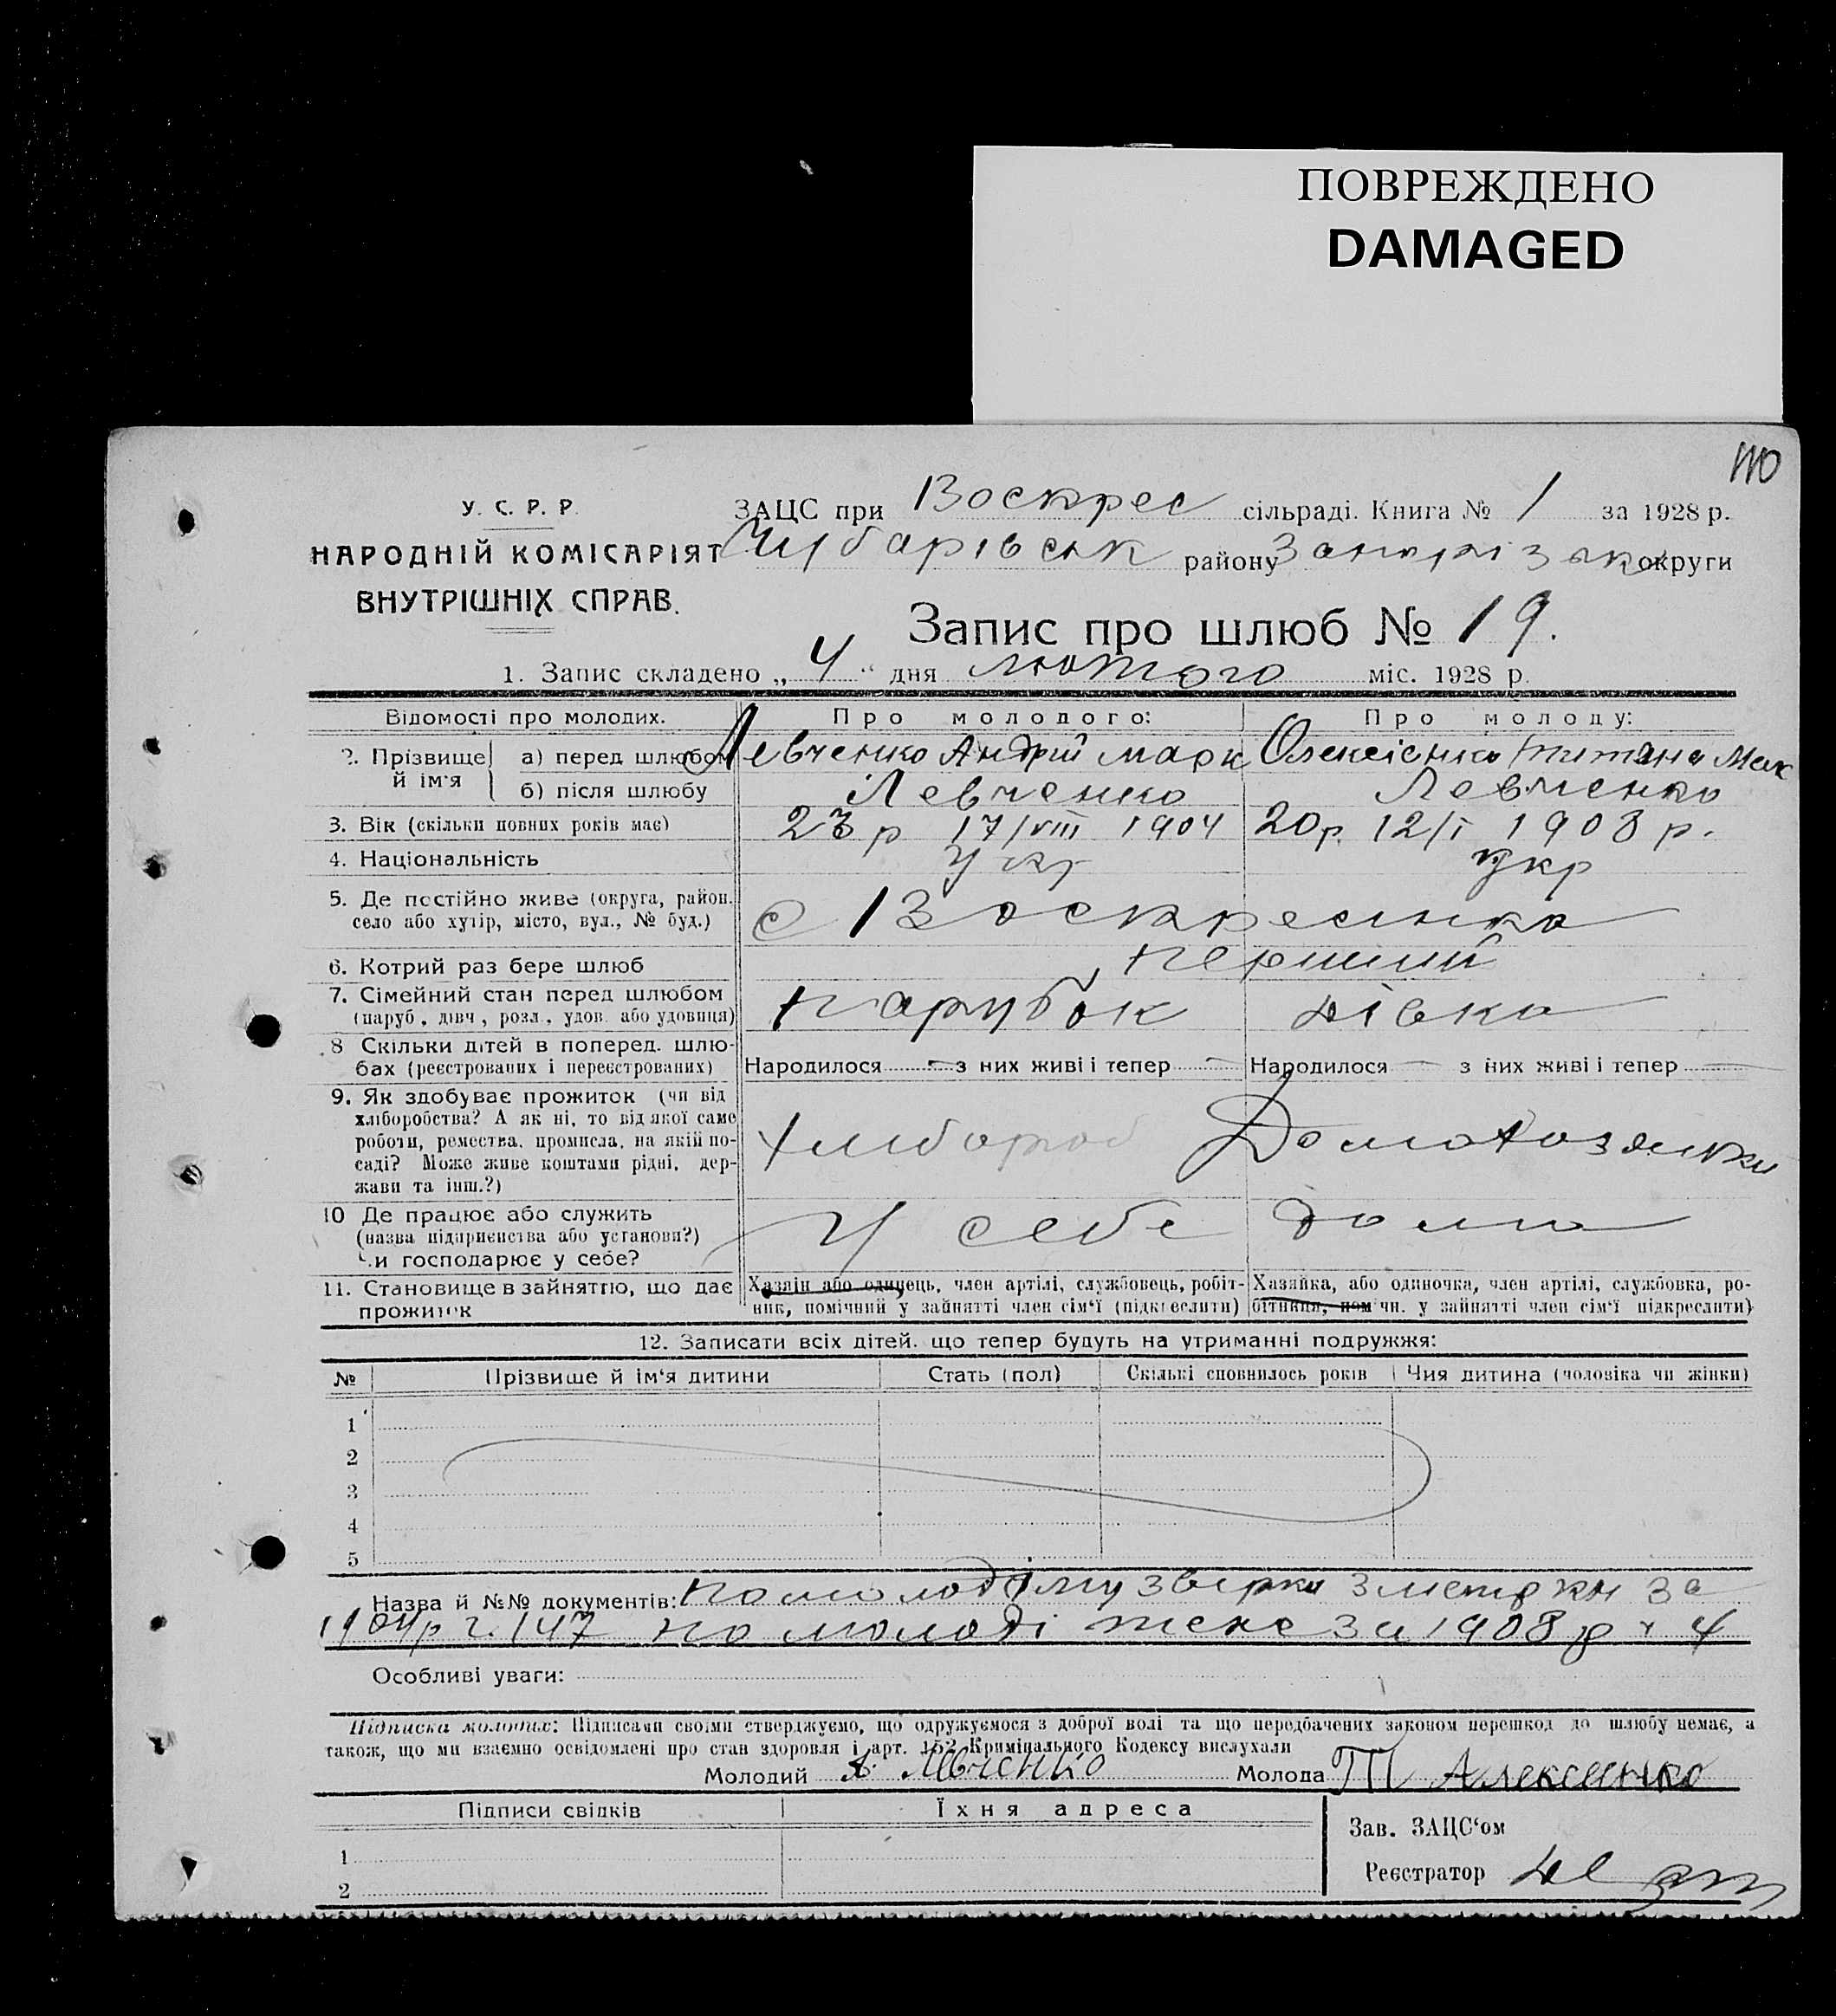 ПОВРЕЖДЕНО
DAMAGED
110
У. С. Р. Р.
НАРОДНІЙ КОМІСАРІЯТ
ВНУТРІШНІХ СПРАВ.
ЗАЦС при Воскрес сільраді. Книга № 1 за 1928 р.
Чубарівськ району Запоріз округи
Запис про шлюб № 19.
1. Запис складено „ 4 “ дня лютого міс. 1928 р.
Відомості про молодих. Про молодого: Про молоду:
2. Прізвище й ім'я а) перед шлюбом Левченко Андрій Марк Олексієнко Титяна Мак
б) після шлюбу Левченко Левченко
3. Вік (скільки повних років має) 23 р 17/VIII 1904 20 р. 12/I 1908 р.
4. Національність укр укр
5. Де постійно живе (округа, район.
село або хутір, місто, вул., № буд.) с Воскресенка
6. Котрий раз бере шлюб перший
7. Сімейний стан перед шлюбом
(паруб., дівч., розл., удов. або удовиця) парубок дівка
8 Скільки дітей в поперед. шлю-
бах (реєстрованих і переєстрованих) Народилося — з них живі і тепер — Народилося — з них живі і тепер —
9. Як здобуває прожиток (чи від
хліборобства? А як ні, то від якої саме
роботи, ремества, промисла, на якій по-
саді? Може живе коштами рідні, дер-
жави та інш.?) хлибороб Домохозяйка
10 Де працює або служить
(назва підприєнства або установи?)
Чи господарює у себе? У себе дома
11. Становище в зайняттю, що дає
прожиток
Хазяїн або одинець, член артілі, службовець, робіт-
ник, помічний у зайнятті член сім'ї (підкреслити)
Хазяйка, або одиночка, член артілі, службовка, ро-
бітниця, помічн. у зайнятті член сім'ї підкреслити)
12. Записати всіх дітей, що тепер будуть на утриманні подружжя:
№ Прізвище й ім'я дитини Стать (пол) Скількі сповнилось років Чия дитина (чоловіка чи жінки)
1
2
3
4
5
Назва й №№ документів: По молодому звірки з метрки за
1904р ч. 147 по молоді теже за 1908 р ч 4
Особливі уваги:
Підписка молодих: Підписами своїми стверджуємо, що одружуємося з доброї волі та що передбачених законом перешкод до шлюбу немає, а
також, що ми взаємно освідомлені про стан здоровля і арт. 152 Кримінального Кодексу вислухали
Молодий А. Левченко Молода Т Алексеенко
Підписи свідків Їхня адреса
Зав. ЗАЦС'ом
1
Реєстратор
2